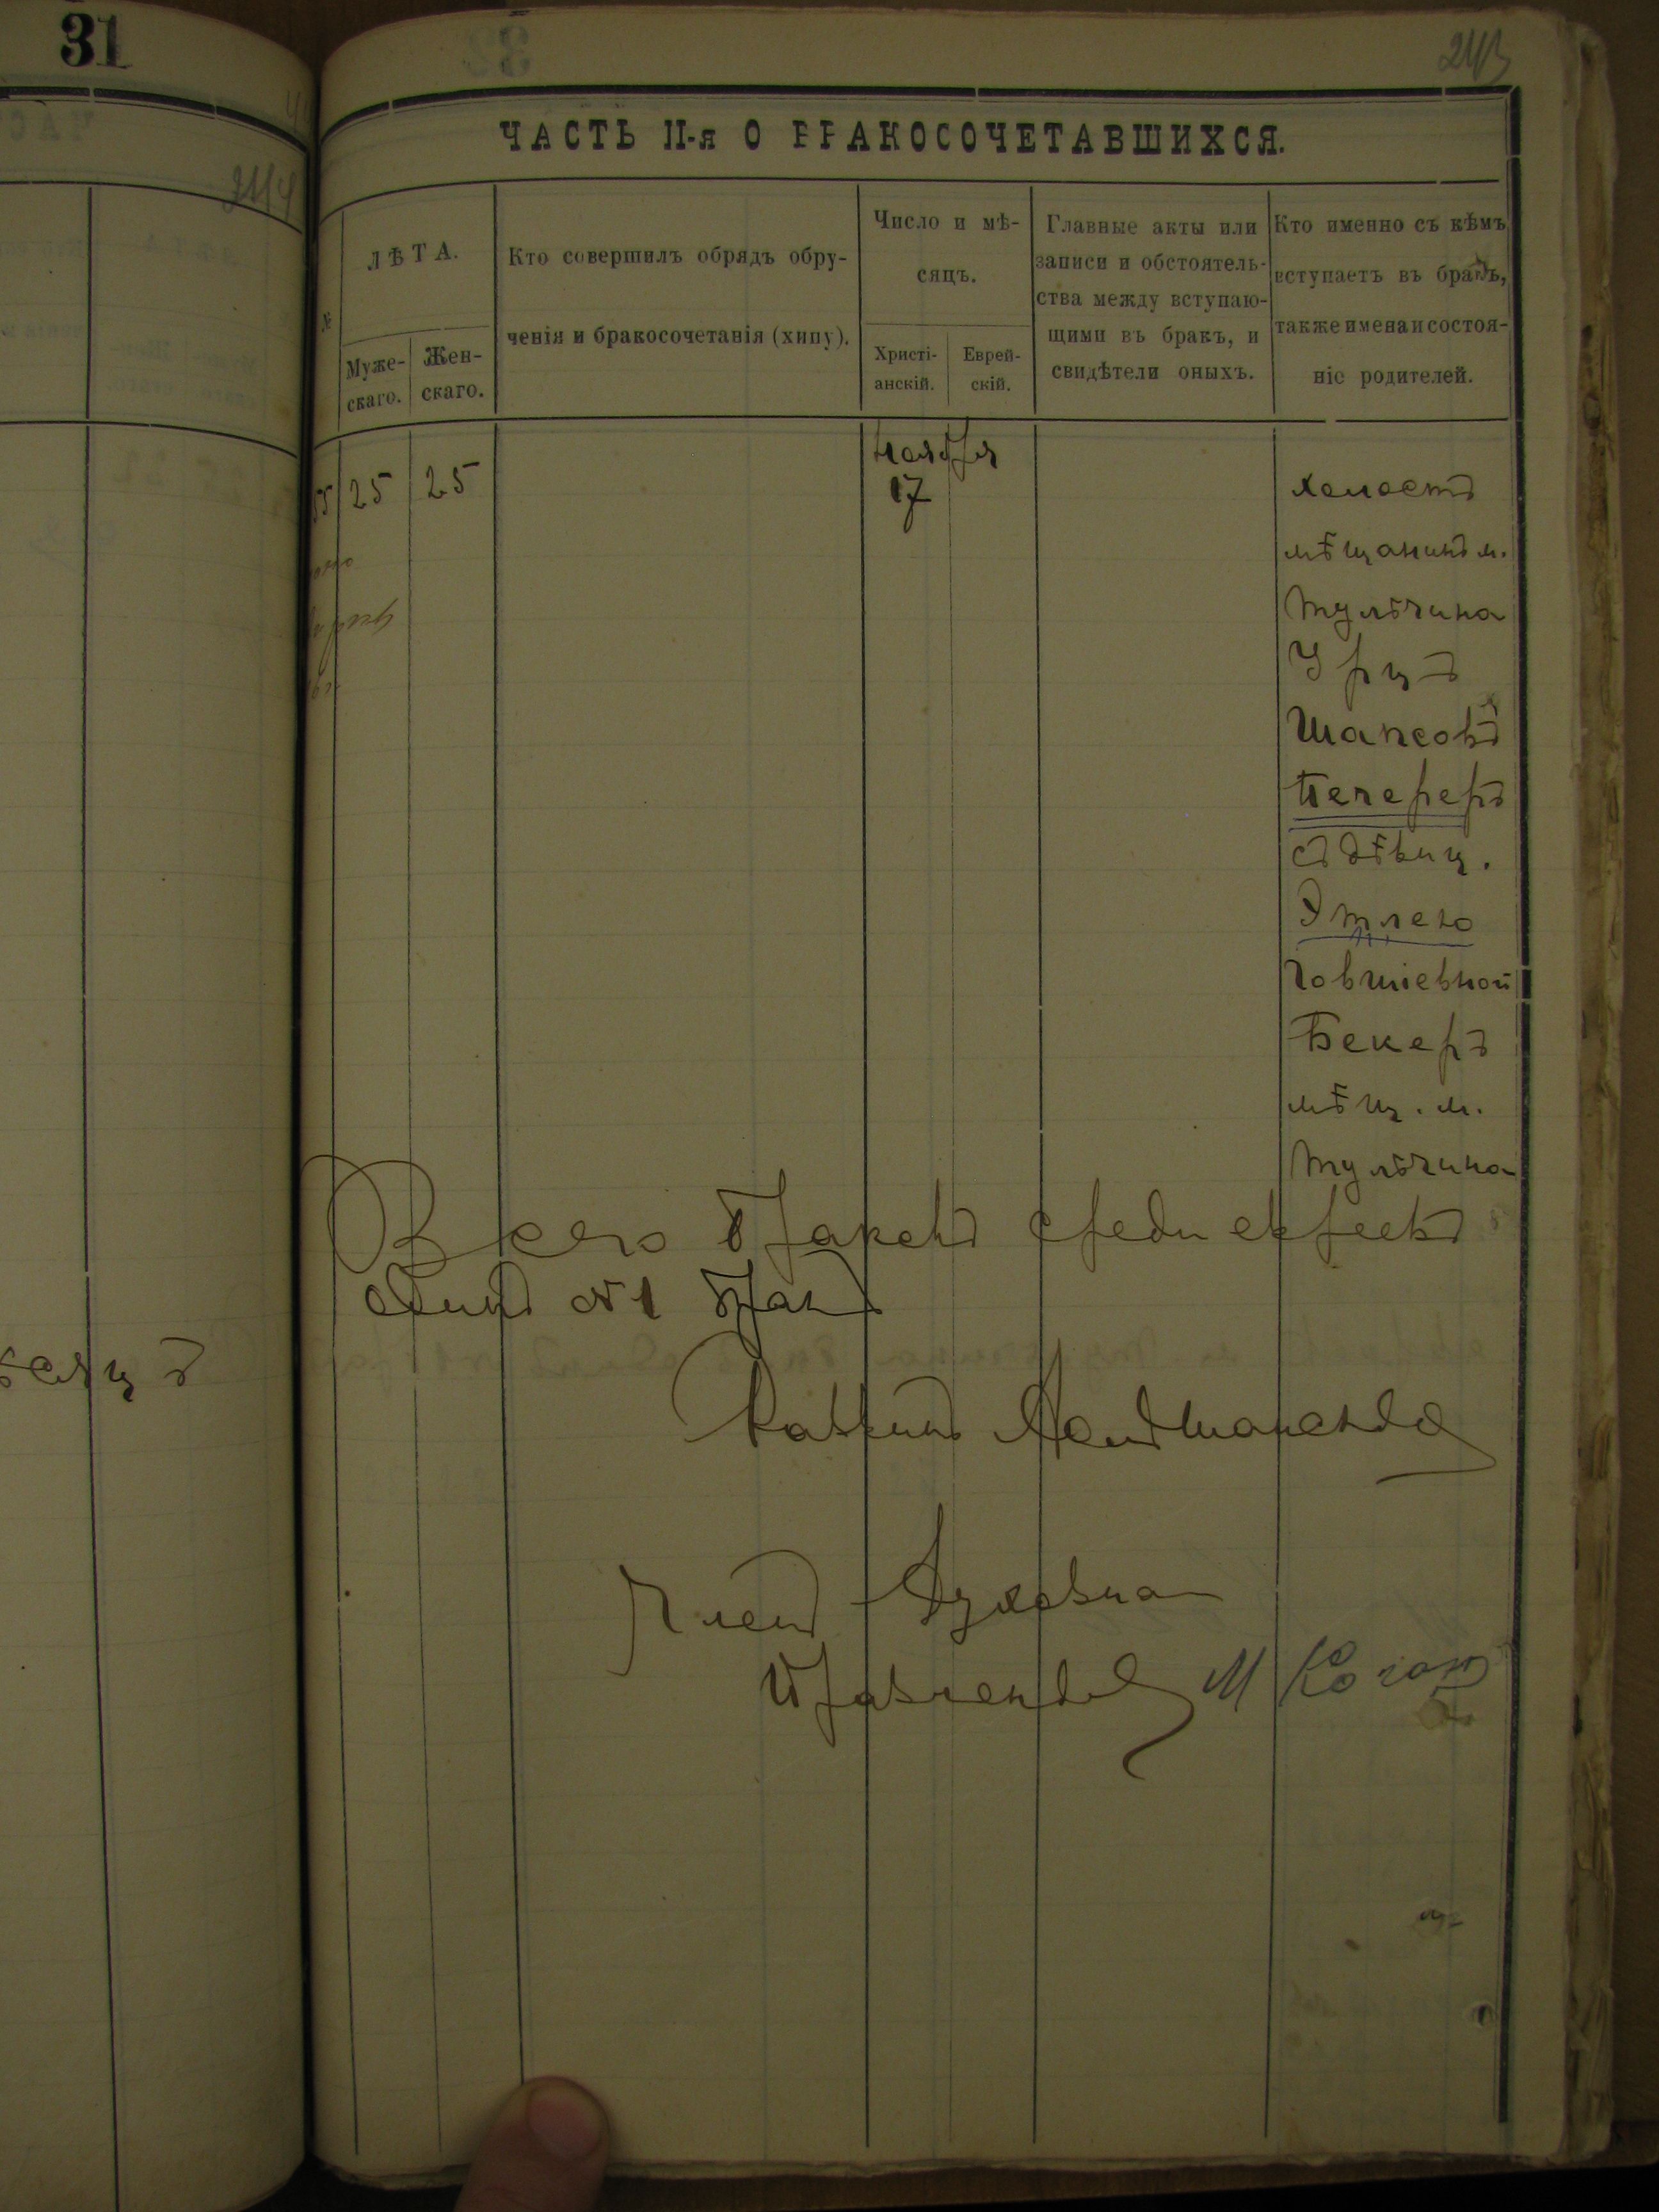 31
244
243
ЧАСТЬ II-я О БРАКОСОЧЕТАВШИХСЯ.
№
ЛѢТА.
Муже-
скаго.
Жен-
скаго.
Кто совершилъ обрядъ обру-
ченія и бракосочетанія (хипу).
Число и мѣ-
сяцъ.
Христі-
анскій.
Еврей-
скій.
Главные акты или
записи и обстоятель-
ства между вступаю-
щими въ бракъ, и
свидѣтели оныхъ.
Кто именно съ кѣмъ
вступаетъ въ бракъ,
также имена и состоя-
ніе родителей.
25
25
Ноября
17
холостъ
мѣщанинъ м.
Тульчина
Урцъ
Шапсовъ
Печереръ
съ дѣвиц.
Этлею
Говшіевной
Бекеръ
мѣщ. м.
Тульчина
Всего браковъ среди евреевъ
одинъ № 1 бракъ
Раввинъ
Членъ Духовна
Правленія М Коганъ